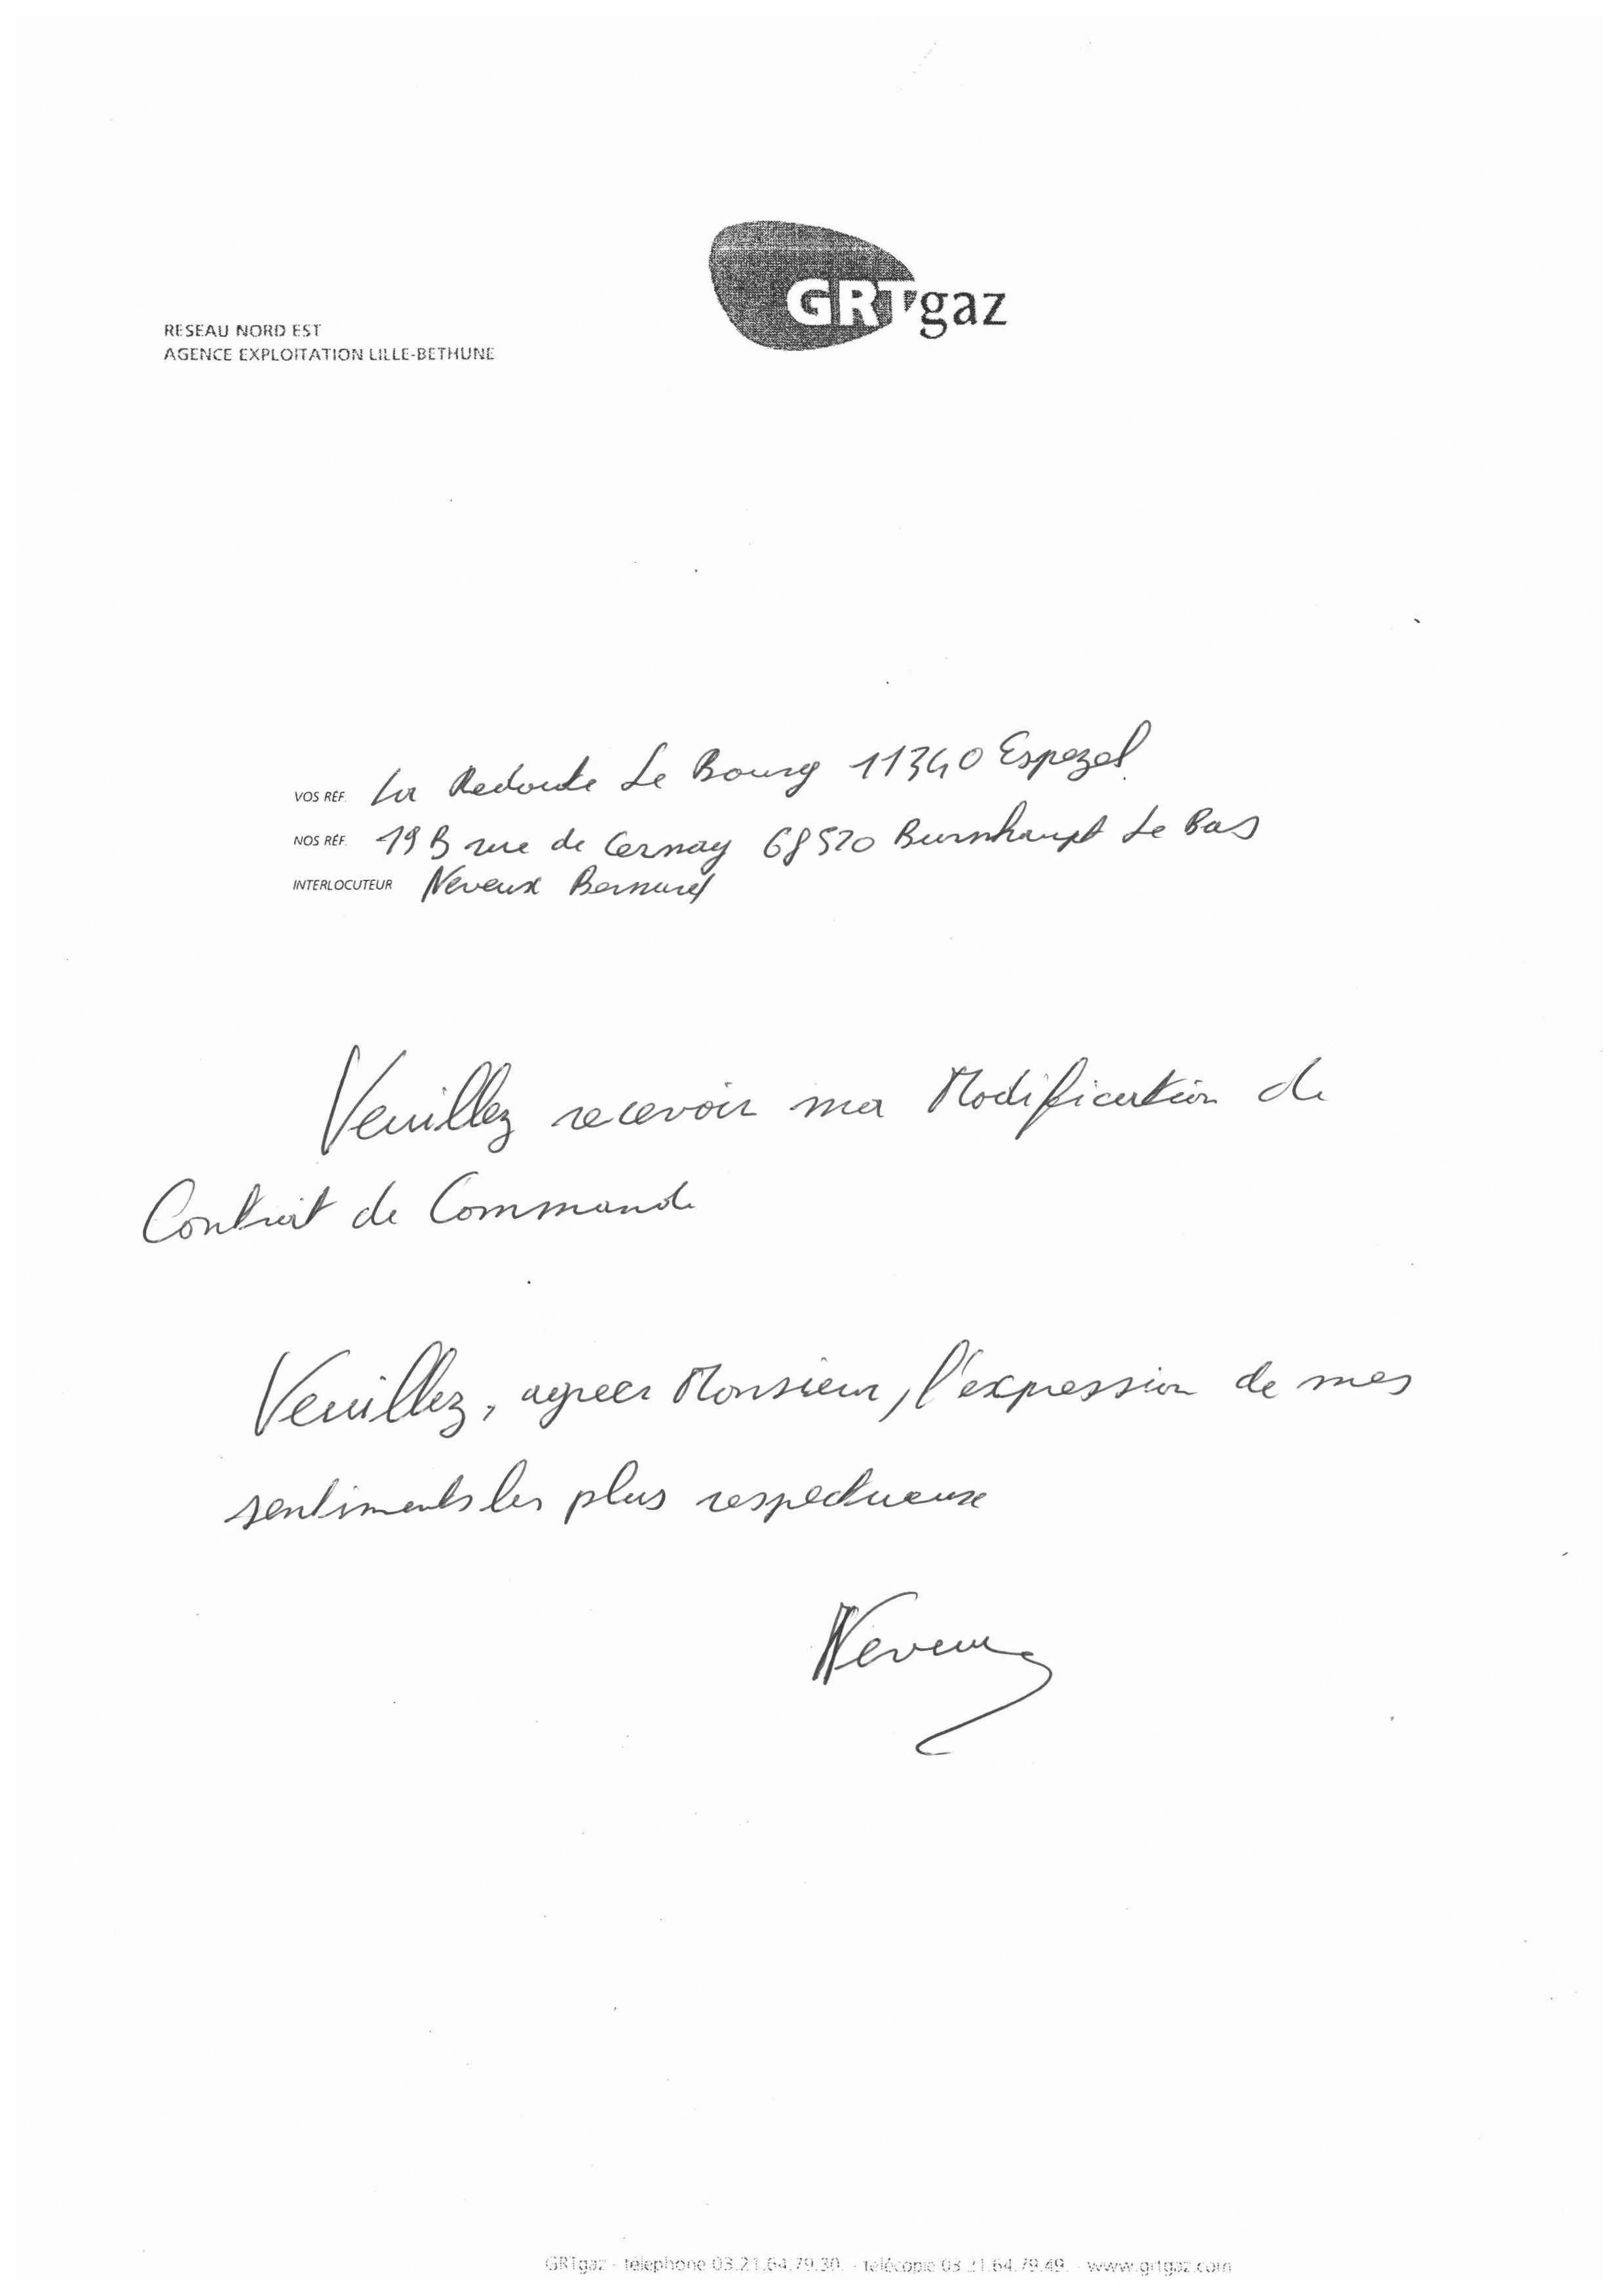 GRTgaz
RESEAU NORD EST
AGENCE EXPLOITATION LILLE-BETHUNE
VOS RÉF. La Redoute Le Bourg 11340 Espezel
NOS RÉF. 19 B rue de Cernay 68520 Burnhaupt Le Bas
INTERLOCUTEUR Neveux Bernard
Veuillez recevoir ma Modification de
Contrat de Commande
Veuillez, agreer Monsieur, l'expression de mes
sentiments les plus respectueuse
Neveux
GRTgaz - téléphone 03.21.64.79.30. - télécopie 03.21.64.79.49. - www.grtgaz.com